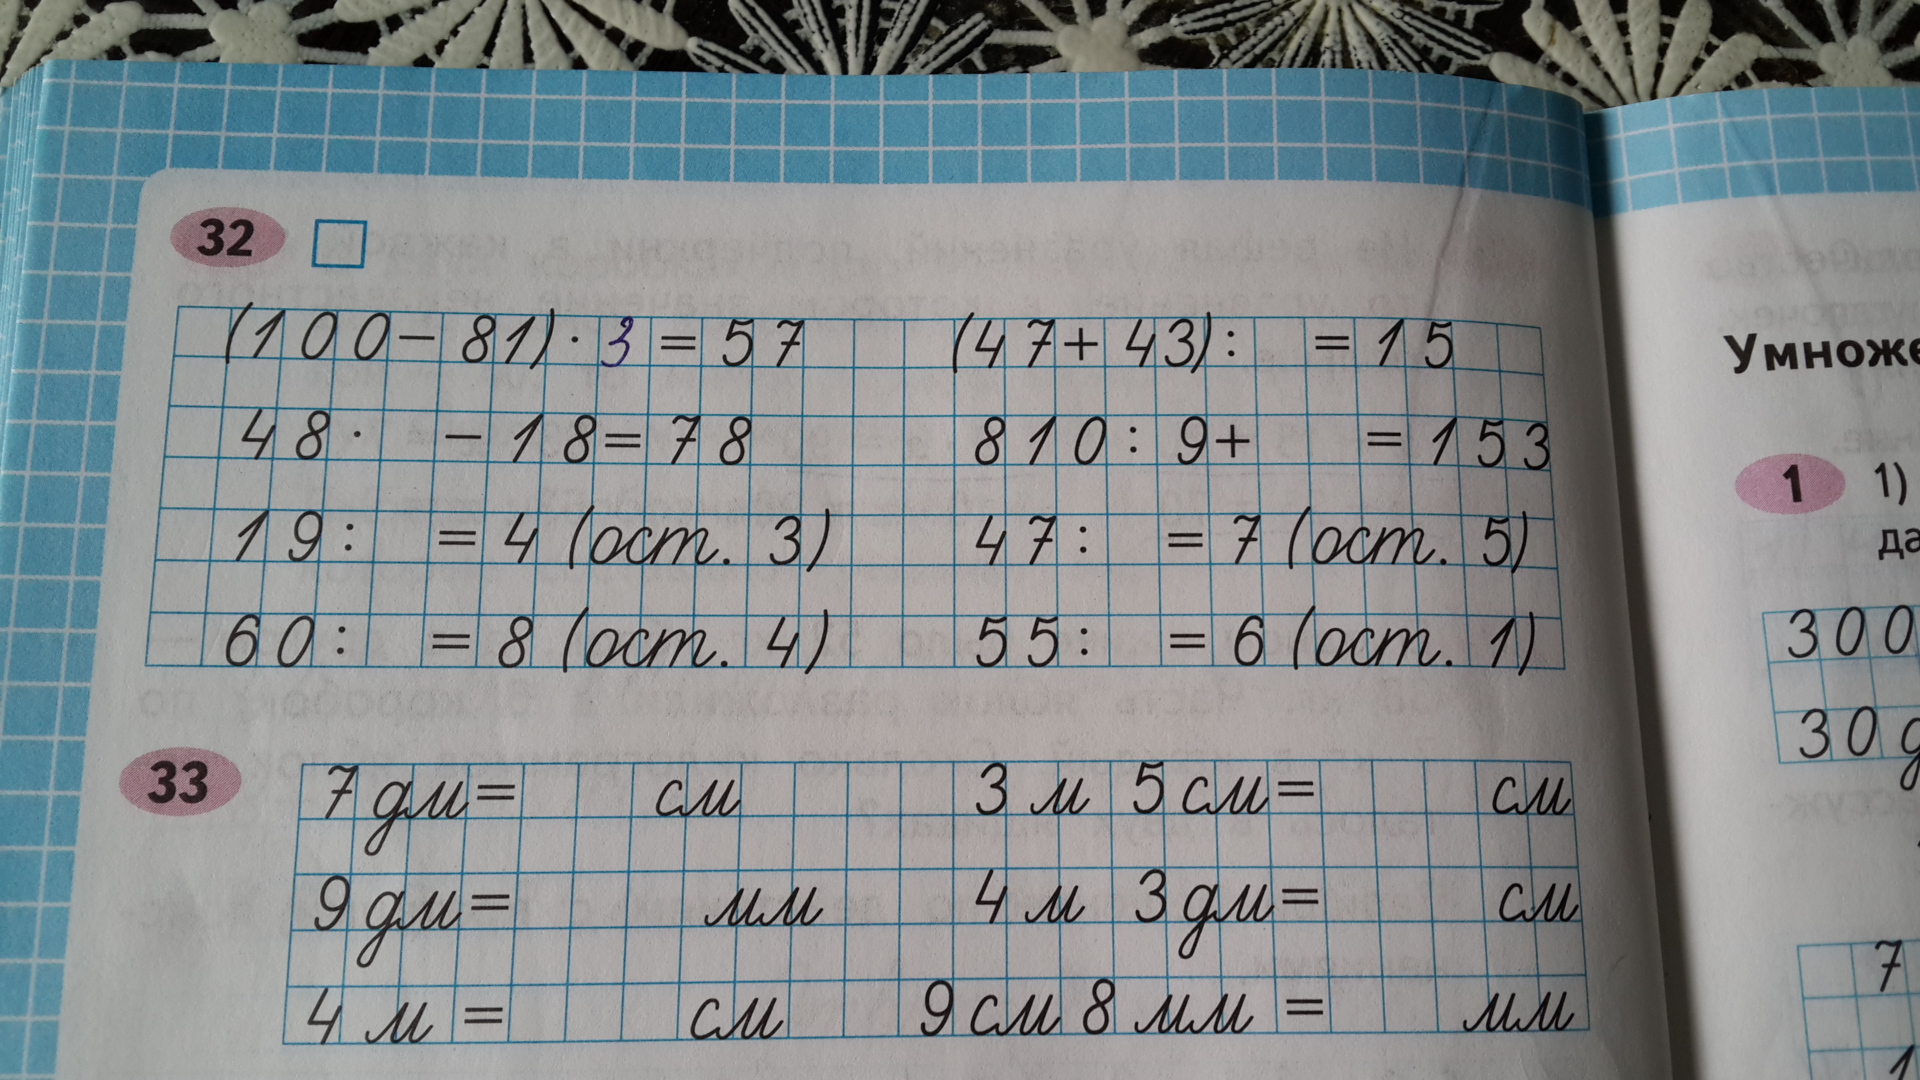 32
(100-81)·3=57 (47+43): =15
48· -18=78 810:9+ =153
19: =4 (ост. 3) 47: =7 (ост. 5)
60: =8 (ост. 4) 55: =6 (ост. 1)
33
7 дм= см 3 м 5 см= см
9 дм= мм 4 м 3 дм= см
4 м = см 9 см 8 мм = мм
1 1)
300
30
7